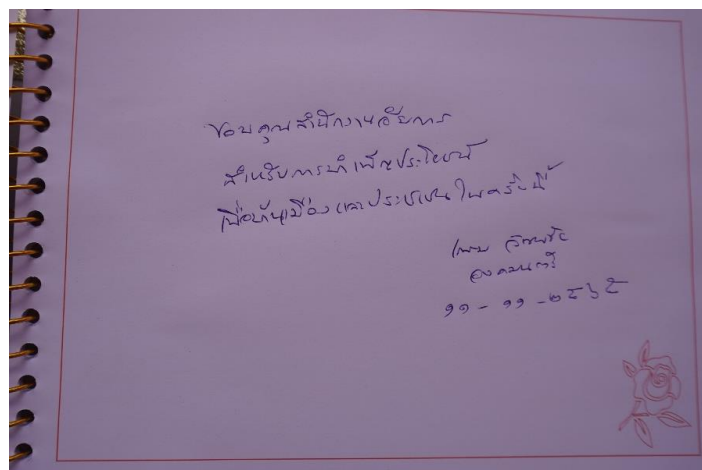 ขอบคุณสำนักงานอัยการ
สำหรับการบำเพ็ญประโยชน์
เพื่อบ้านเมืองและประชาชนในครั้งนี้
องคมนตรี
๑๑ - ๑๑ - ๒๕๖๕